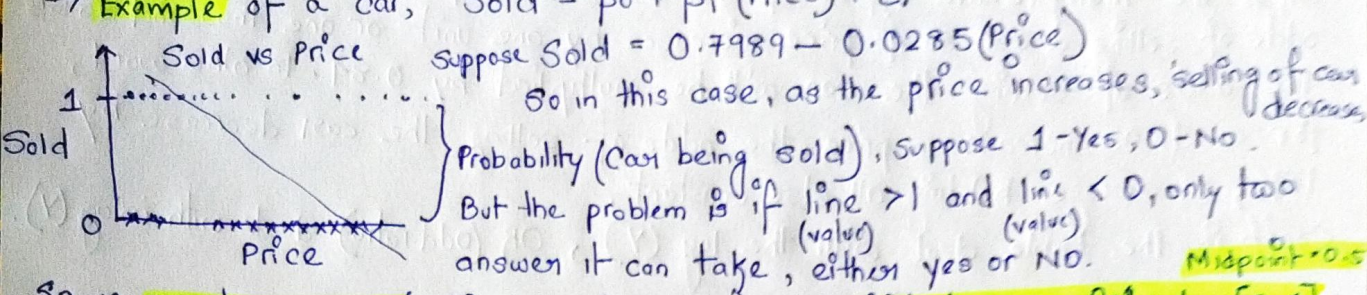 Example of a car, Sold
Sold vs Price
Suppose Sold = 0.7989 - 0.0285 (Price)
1
So in this case, as the price increases, selling of car decrease
Sold
Probability (Car being sold), Suppose 1-Yes, 0-No.
But the problem is if line >1 and line < 0, only too
(value) (value)
0
Price
answer it can take, either yes or NO.
Midpoint = 0.5